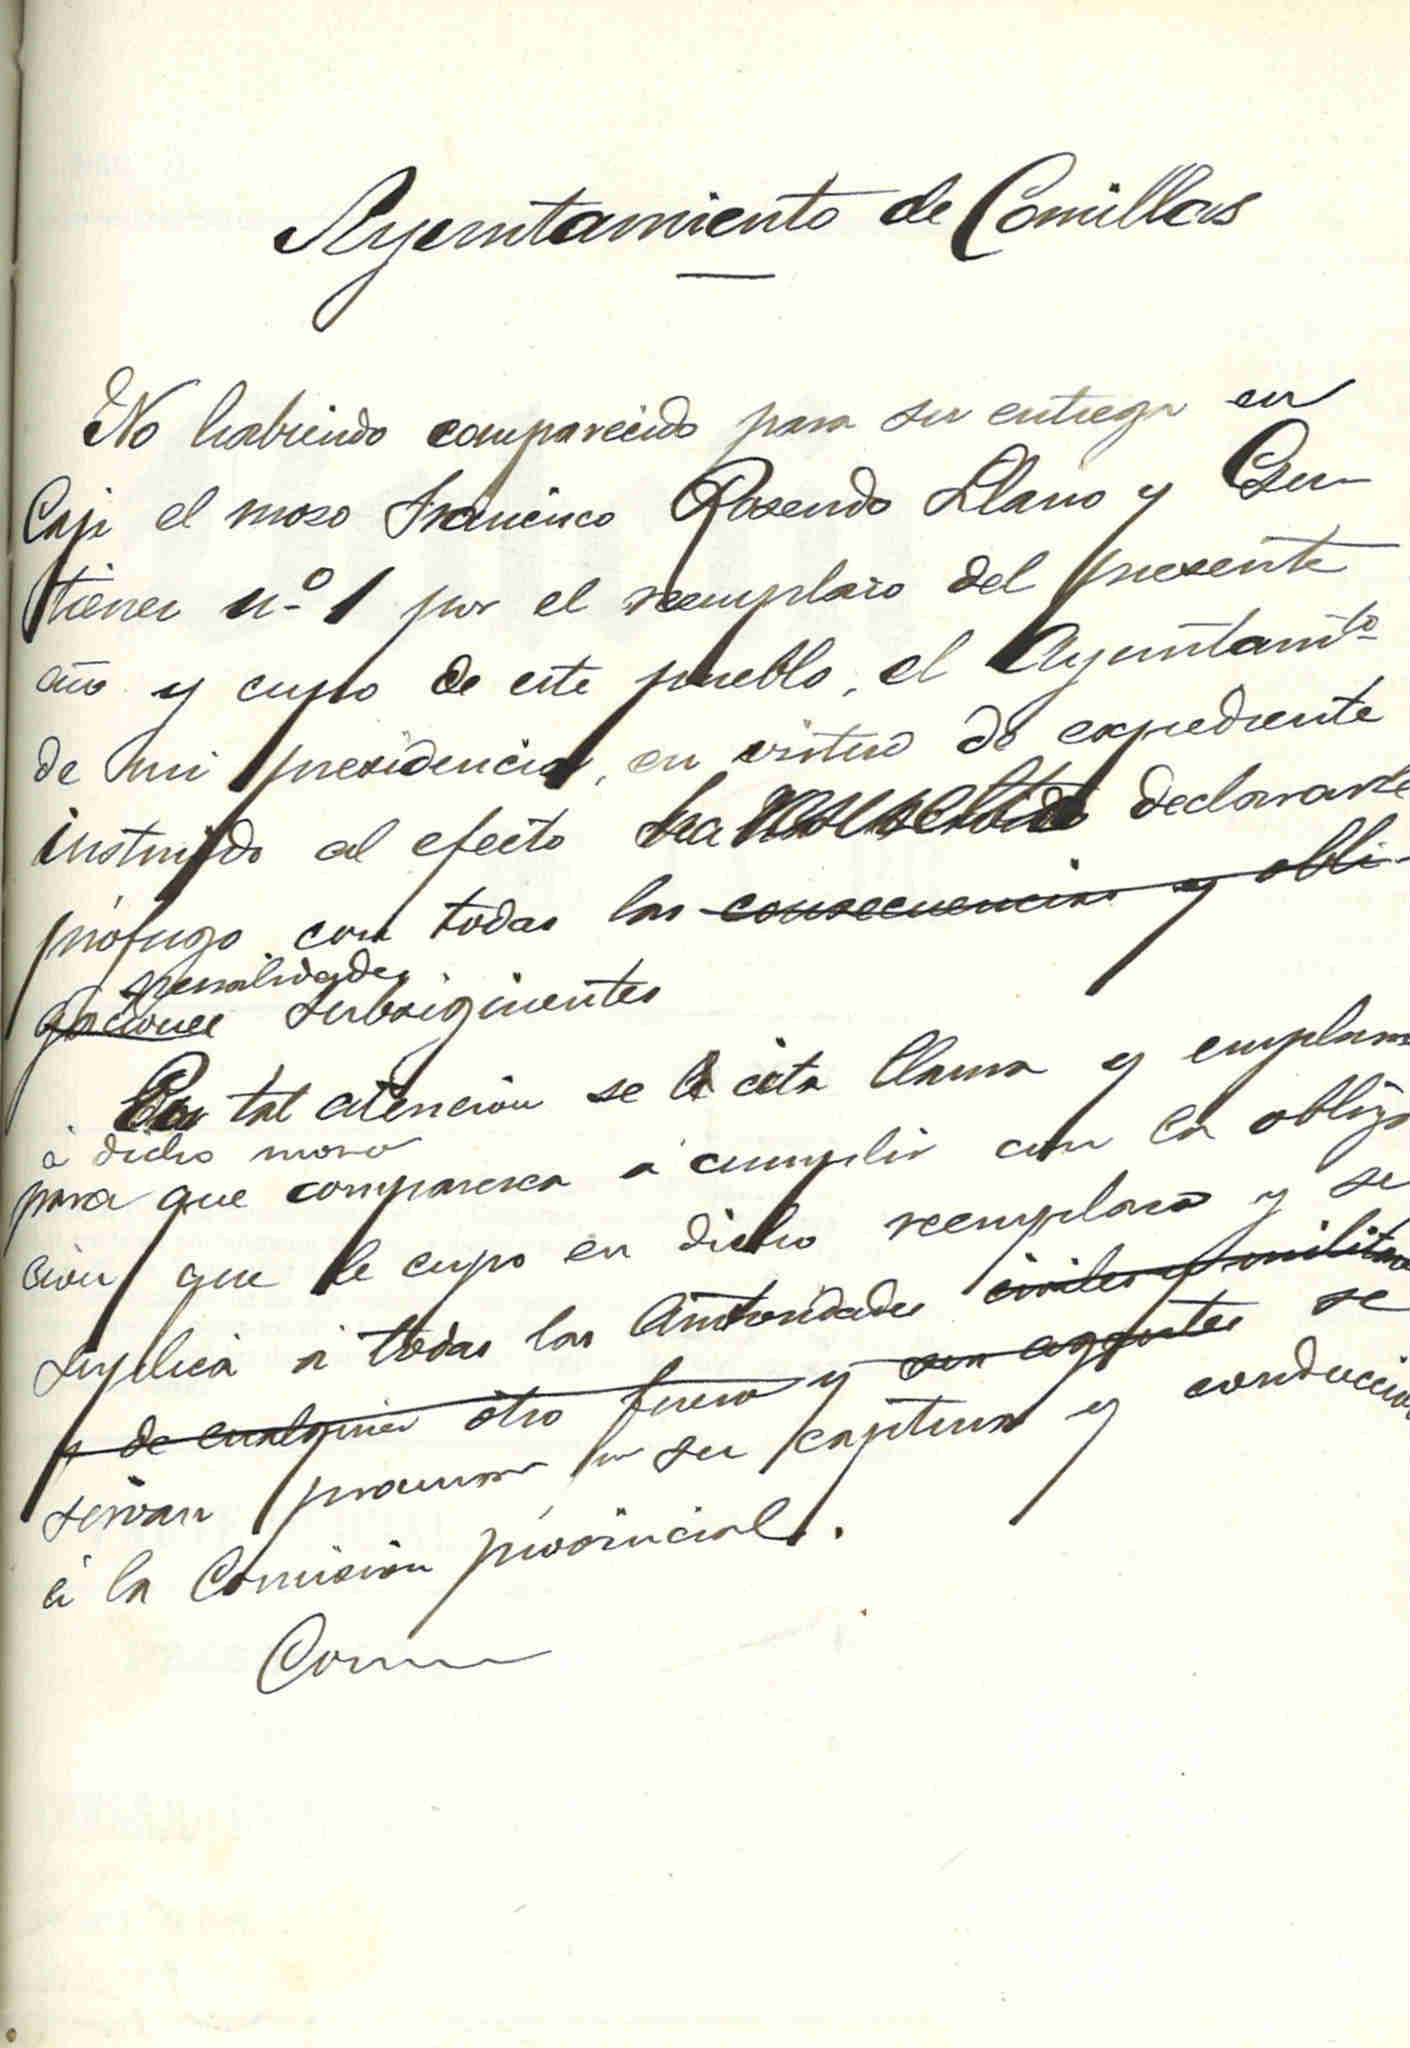 Ayuntamiento de Comillas
No habiendo comparecido para su entrega en
Caja el moso Francisco Rosendo Llano y Gu-
tierrez n.º 1 por el reemplazo del presente
año y cupo de este pueblo, el Ayuntamto
de mi presidencia, en virtud de expediente
instruido al efecto ha resuelto declararle
prófugo con todas las consecuencias y obli-
penalidades
gaciones subsiguientes
En tal atencion se le cita llama y emplaza
á dicho mozo
para que comparezca á cumplir con la obliga
cion que le cupo en dicho reemplazo y se
suplica á todas las Autoridades civiles y militares
y de cualquier otro fuero y sus agentes se
sirvan procurar su captura y conduccion
á la Comision provincial.